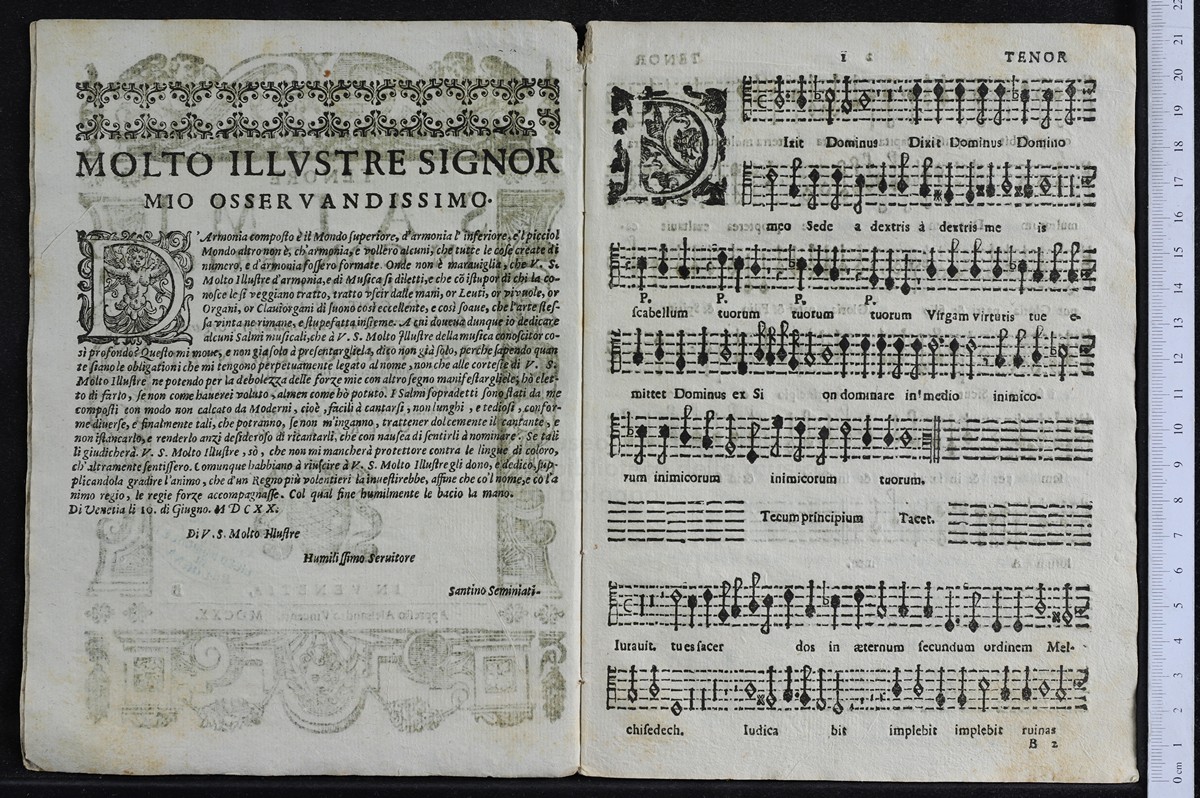 MOLTO ILLVSTRE SIGNOR
MIO OSSERVANDISSIMO.
D 'Armonia composto è il Mondo superiore, d'armonia l'inferiore, e'l picciol
Mondo altro non è, ch'armonia, e vollero alcuni, che tutte le cose create di
numero, e d'armonia fossero formate. Onde non è marauiglia, che V. S.
Molto Illustre d'armonia, e di Musica si diletti, e che cō istupor di chi la co-
nosce le si veggiano tratto, tratto vscir dalle mani, or Leuti, or viuuole, or
Organi, or Clauiorgani di suono così eccellente, e così soaue, che l'arte stes-
sa vinta ne rimane, e stupefatta insieme. A chi doueua dunque io dedicare
alcuni Salmi musicali, che à V. S. Molto Illustre della musica conoscitor co-
sì profondo? Questo mi moue, e non già solo à presentargliele, dico non già solo, perche sapendo quan
te siano le obligationi che mi tengono perpetuamente legato al nome, non che alle cortesie di V. S.
Molto Illustre ne potendo per la debolezza delle forze mie con altro segno manifestargliele; hò elet-
to di farlo, se non come hauerei voluto, almen come hò potuto. I Salmi sopradetti sono stati da me
composti con modo non calcato da Moderni, cioè, facili à cantarsi, non lunghi, e tediosi, confor-
me diuerse, e finalmente tali, che potranno, se non m'inganno, trattener dolcemente il cantante, e
non istancarlo, e renderlo anzi desideroso di ricantarli, che con nausea di sentirli à nominare. Se tali
li giudicherà. V. S. Molto Illustre, sò, che non mi mancherà protettore contra le lingue di coloro,
ch'altramente sentissero. Comunque habbiano à riuscire à V. S. Molto Illustre gli dono, e dedico, sup-
plicandola gradire l'animo, che d'un Regno più volentieri la inuestirebbe, affine che co'l nome, e co'l a
nimo regio, le regie forze accompagnasse. Col qual fine humilmente le bacio la mano.
Di Venetia li 10. di Giugno. MDCXX.
Di V. S. Molto Illustre
Humilissimo Seruitore
Santino Seminiati.
TENOR
D Ixit Dominus Dixit Dominus Domino
meo Sede a dextris à dextris me is
P. P. P. P.
scabellum tuorum tuorum tuorum Virgam virtutis tue e-
mittet Dominus ex Si on dominare in medio inimico-
rum inimicorum inimicorum tuorum.
Tecum principium Tacet.
Iurauit. tu es sacer dos in æternum secundum ordinem Mel-
chisedech. Iudica bit implebit implebit ruinas
B 2